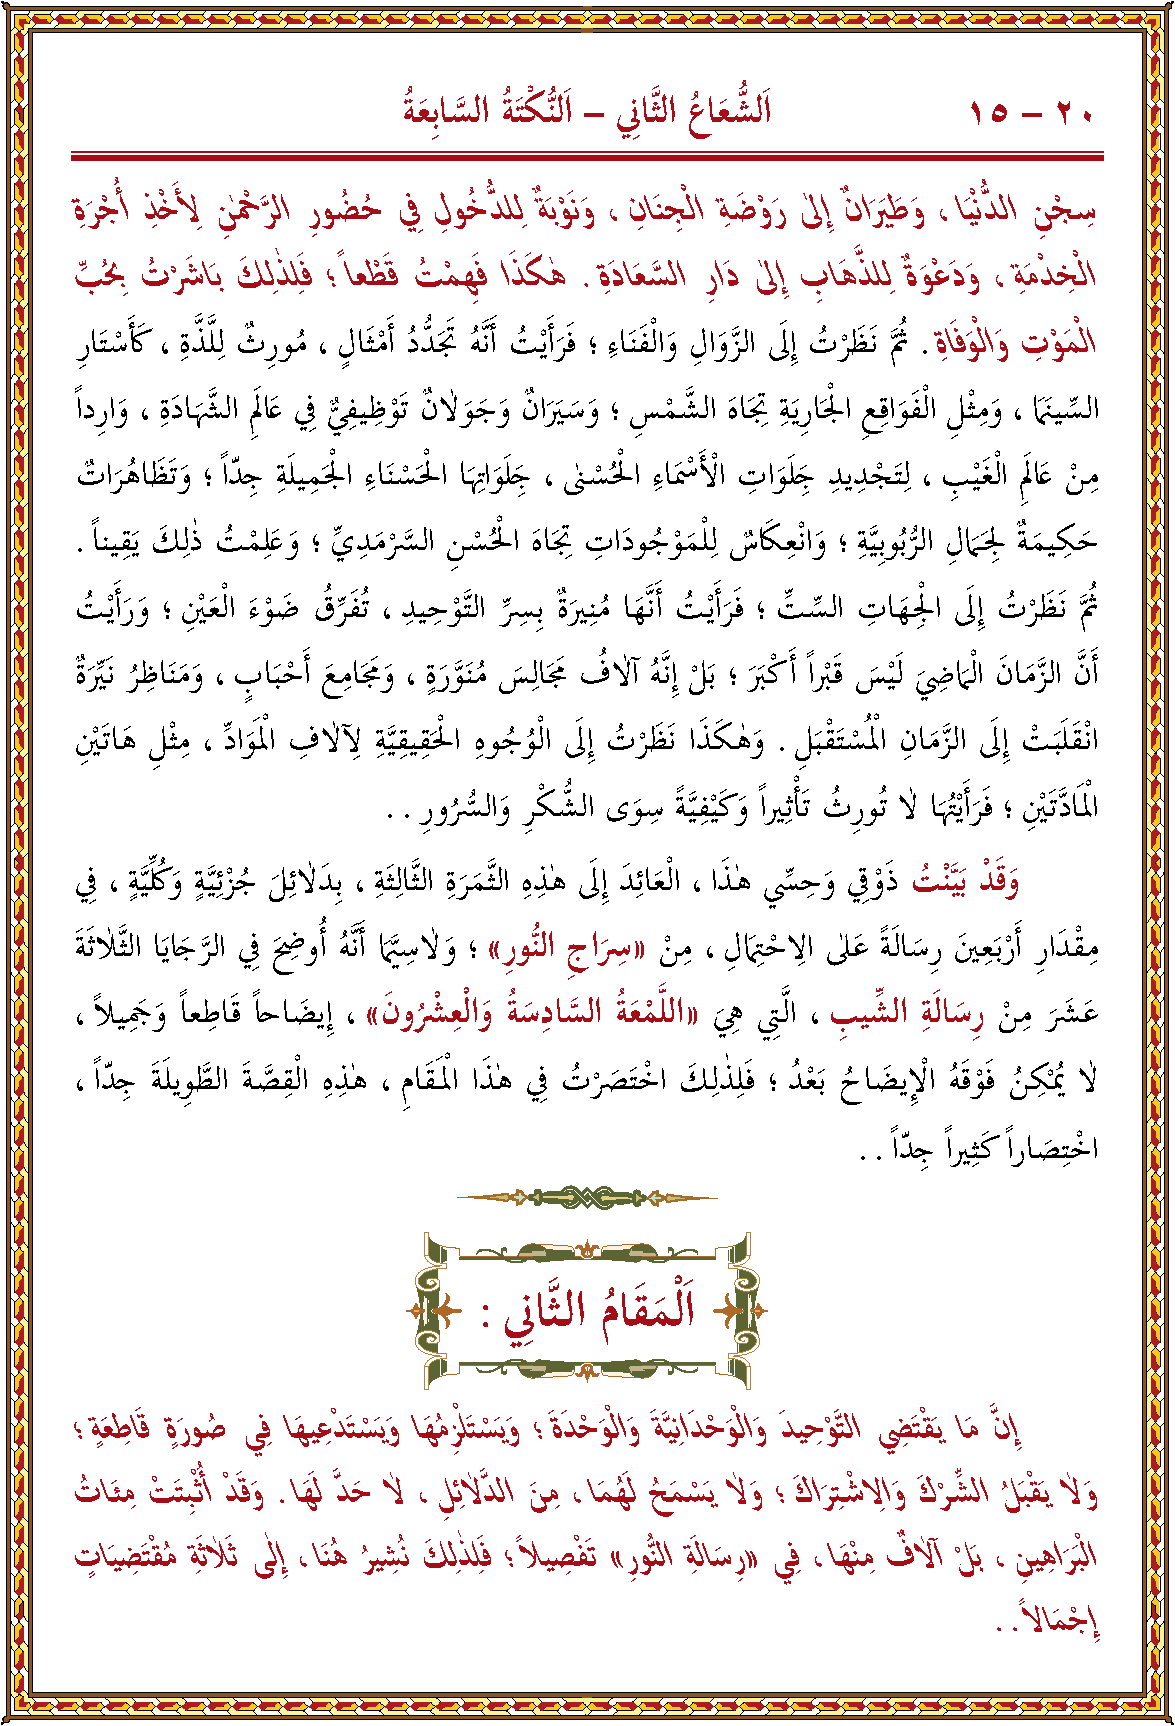 ٢٠ – ١٥ اَلشُّعَاعُ الثَّانِي – اَلنُّكْتَةُ السَّابِعَةُ
سِجْنِ الدُّنْيَا ، وَطَيَرَانٌ إِلٰى رَوْضَةِ الْجِنَانِ ، وَنَوْبَةٌ لِلدُّخُولِ فِي حُضُورِ الرَّحْمٰنِ لِأَخْذِ أُجْرَةِ
الْخِدْمَةِ ، وَدَعْوَةٌ لِلذَّهَابِ إِلٰى دَارِ السَّعَادَةِ . هٰكَذَا فَهِمْتُ قَطْعاً ؛ فَلِذٰلِكَ بَاشَرْتُ بِحُبِّ
الْمَوْتِ وَالْوَفَاةِ . ثُمَّ نَظَرْتُ إِلَى الزَّوَالِ وَالْفَنَاءِ ؛ فَرَأَيْتُ أَنَّهُ تَجَدُّدُ أَمْثَالٍ ، مُورِثٌ لِلَّذَّةِ ، كَأَسْتَارِ
السِّينَمَا ، وَمِثْلِ الْفَوَاقِعِ الْجَارِيَةِ تِجَاهَ الشَّمْسِ ؛ وَسَيَرَانٌ وَجَوَلَانٌ تَوْظِيفِيٌّ فِي عَالَمِ الشَّهَادَةِ ، وَارِداً
مِنْ عَالَمِ الْغَيْبِ ، لِتَجْدِيدِ جَلَوَاتِ الْأَسْمَاءِ الْحُسْنٰى ، جَلَوَاتِهَا الْحَسْنَاءِ الْجَمِيلَةِ جِدّاً ؛ وَتَظَاهُرَاتٌ
حَكِيمَةٌ لِجَمَالِ الرُّبُوبِيَّةِ ؛ وَانْعِكَاسٌ لِلْمَوْجُودَاتِ تِجَاهَ الْحُسْنِ السَّرْمَدِيِّ ؛ وَعَلِمْتُ ذٰلِكَ يَقِيناً .
ثُمَّ نَظَرْتُ إِلَى الْجِهَاتِ السِّتِّ ؛ فَرَأَيْتُ أَنَّهَا مُنِيرَةٌ بِسِرِّ التَّوْحِيدِ ، تُفَرِّقُ ضَوْءَ الْعَيْنِ ؛ وَرَأَيْتُ
أَنَّ الزَّمَانَ الْمَاضِيَ لَيْسَ قَبْراً أَكْبَرَ ؛ بَلْ إِنَّهُ آلَافُ مَجَالِسَ مُنَوَّرَةٍ ، وَمَجَامِعَ أَحْبَابٍ ، وَمَنَاظِرُ نَيِّرَةٌ
انْقَلَبَتْ إِلَى الزَّمَانِ الْمُسْتَقْبَلِ . وَهٰكَذَا نَظَرْتُ إِلَى الْوُجُوهِ الْحَقِيقِيَّةِ لِآلَافِ الْمَوَادِّ ، مِثْلِ هَاتَيْنِ
الْمَادَّتَيْنِ ؛ فَرَأَيْتُهَا لَا تُورِثُ تَأْثِيراً وَكَيْفِيَّةً سِوَى الشُّكْرِ وَالسُّرُورِ . .
وَقَدْ بَيَّنْتُ ذَوْقِي وَحِسِّي هٰذَا ، الْعَائِدَ إِلَى هٰذِهِ الثَّمَرَةِ الثَّالِثَةِ ، بِدَلَائِلَ جُزْئِيَّةٍ وَكُلِّيَّةٍ ، فِي
مِقْدَارِ أَرْبَعِينَ رِسَالَةً عَلَى الِاحْتِمَالِ ، مِنْ «سِرَاجِ النُّورِ» ؛ وَلَاسِيَّمَا أَنَّهُ أُوضِحَ فِي الرَّجَايَا الثَّلَاثَةَ
عَشَرَ مِنْ رِسَالَةِ الشِّيبِ ، الَّتِي هِيَ «اللَّمْعَةُ السَّادِسَةُ وَالْعِشْرُونَ» ، إِيضَاحاً قَاطِعاً وَجَمِيلاً ،
لَا يُمْكِنُ فَوْقَهُ الْإِيضَاحُ بَعْدُ ؛ فَلِذٰلِكَ اخْتَصَرْتُ فِي هٰذَا الْمَقَامِ ، هٰذِهِ الْقِصَّةَ الطَّوِيلَةَ جِدّاً ،
اخْتِصَاراً كَثِيراً جِدّاً . .
اَلْمَقَامُ الثَّانِي :
إِنَّ مَا يَقْتَضِي التَّوْحِيدَ وَالْوَحْدَانِيَّةَ وَالْوَحْدَةَ ؛ وَيَسْتَلْزِمُهَا وَيَسْتَدْعِيهَا فِي صُورَةٍ قَاطِعَةٍ ؛
وَلَا يَقْبَلُ الشِّرْكَ وَالِاشْتِرَاكَ ؛ وَلَا يَسْمَحُ لَهُمَا ، مِنَ الدَّلَائِلِ ، لَا حَدَّ لَهَا . وَقَدْ أُثْبِتَتْ مِئَاتُ
الْبَرَاهِينِ ، بَلْ آلَافٌ مِنْهَا ، فِي «رِسَالَةِ النُّورِ» تَفْصِيلاً ؛ فَلِذٰلِكَ نُشِيرُ هُنَا ، إِلٰى ثَلَاثَةِ مُقْتَضِيَاتٍ
إِجْمَالاً . .